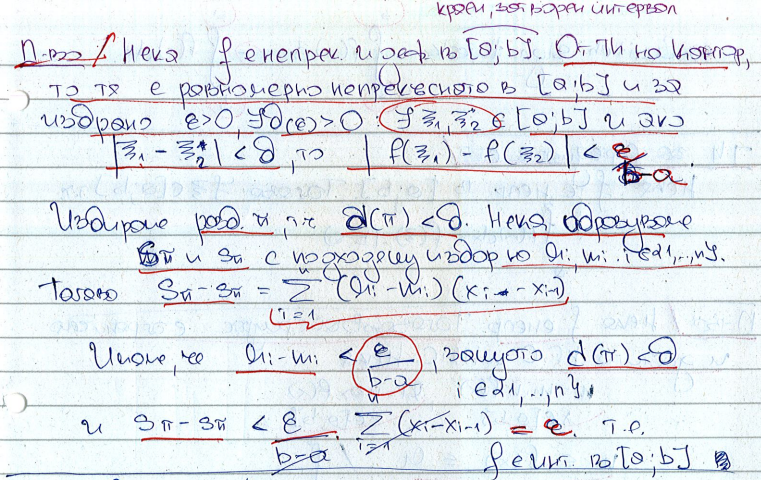 краен, затворен интервал
Д-во/ Нека f е непрек. и деф. в [a;b]. От Т на Кантор,
то тя е равномерно непрекъсната в [a;b] и за
избрано ε>0, ∃δ(ε)>0 : ∀ ξ₁, ξ₂ ∈ [a;b] и ако
|ξ₁ - ξ₂| < δ, то | f(ξ₁) - f(ξ₂) | < ε/(b-a)
Избираме разб. π, т.ч. d(π) < δ. Нека образуваме
Sπ и sπ с подходящ избор на Mi, mi. i∈{1,..,n}.
Тогава Sπ - sπ = ∑ⁿᵢ₌₁ (Mi - mi) (xi - xi-1)
Имаме, че Mi - mi < ε/(b-a), защото d(π) < δ
i∈{1,..,n},
и Sπ - sπ < ε/(b-a) . ∑ⁿᵢ₌₁ (xi - xi-1) = ε. т.е.
f е инт. в [a;b].